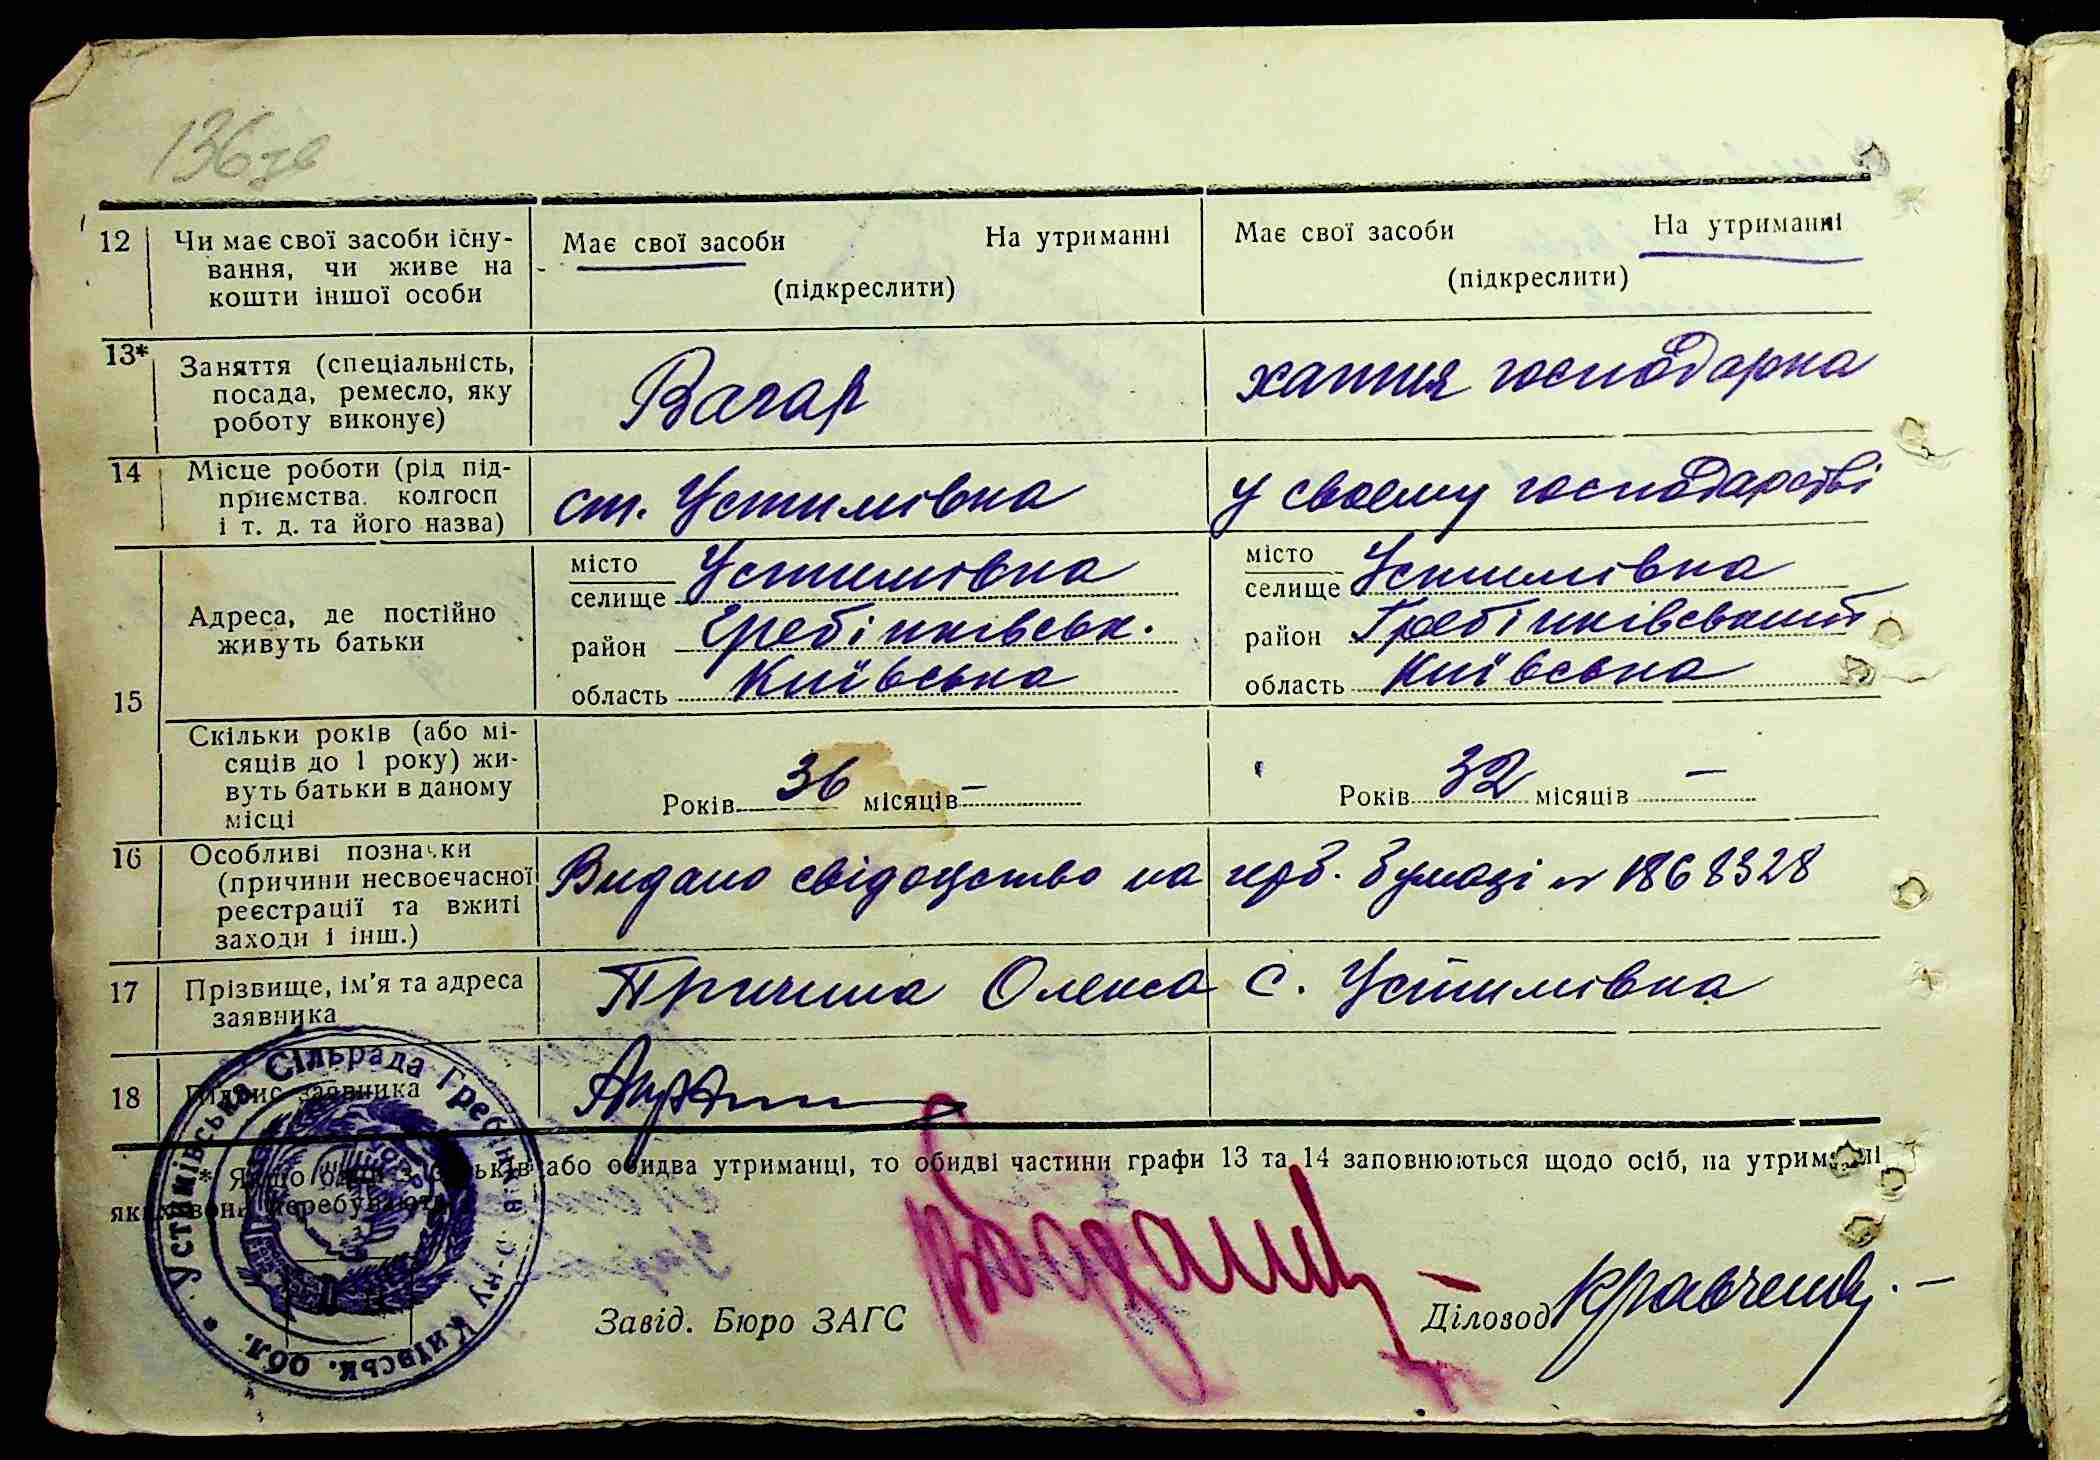 136зв
12 Чи має свої засоби існу-
вання, чи живе на
кошти іншої особи
Має свої засоби На утриманні
(підкреслити)
Має свої засоби На утриманні
(підкреслити)
13* Заняття (спеціальність,
посада, ремесло, яку
роботу виконує)
Вагар
хатня господарка
14 Місце роботи (рід під-
приємства, колгосп
і т. д. та його назва)
ст. Устимівка
у своєму господарстві
15
Адреса, де постійно
живуть батьки
місто
селище Устимівка
район Гребінківськ.
область Київська
місто
селище Устимівка
район Гребінківський
область Київська
Скільки років (або мі-
сяців до 1 року) жи-
вуть батьки в даному
місці
Років 36 місяців —
Років 32 місяців —
16 Особливі позначки
(причини несвоєчасної
реєстрації та вжиті
заходи і інш.)
Видано свідоцтво на герб. бумазі № 1868328
17 Прізвище, ім'я та адреса
заявника
Причина Олекса с. Устимівка
18 Підпис заявника
* Якщо один з батьків або обидва утриманці, то обидві частини графи 13 та 14 заповнюються щодо осіб, на утриманні
яких вони перебувають.
Устимівська Сільрада Гребінків. р-ну Київськ. обл.
Завід. Бюро ЗАГС
Діловод Кравченко